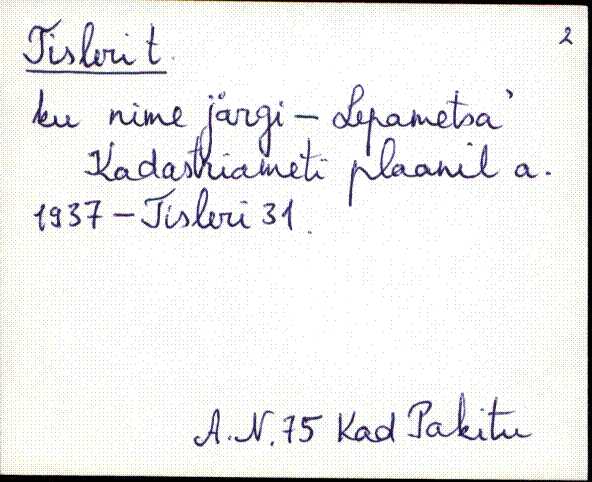 Tisleri t. 2
ku nime järgi – Lepametsa
Kadastriameti plaanil a.
1937 – Tisleri 31.
A.N. 75 Kad Pakitu